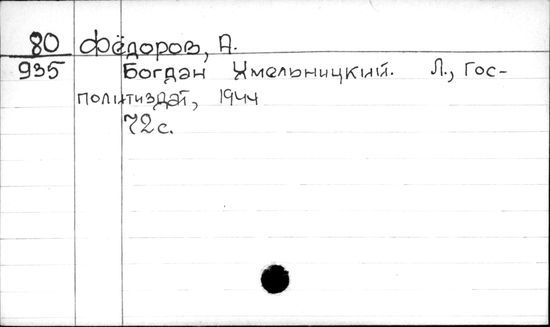 80 Фёдоров, А.
935 Богдан Хмельницкий. Л., Гос-
политиздат, 1944
72 с.